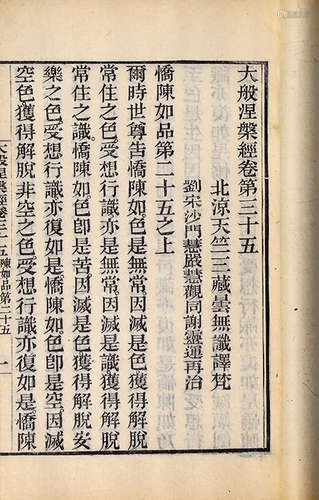 大般涅槃經卷第三十五
北涼天竺三藏曇無讖譯梵
劉宋沙門慧嚴慧觀同謝靈運再治
憍陳如品第二十五之上
爾時世尊告憍陳如色是無常因滅是色獲得解脫
常住之色受想行識亦是無常因滅是識獲得解脫
常住之識憍陳如色即是苦因滅是色獲得解脫安
樂之色受想行識亦復如是憍陳如色即是空因滅
空色獲得解脫非空之色受想行識亦復如是憍陳
大般涅槃經卷三十五 陳如品第二十五 一